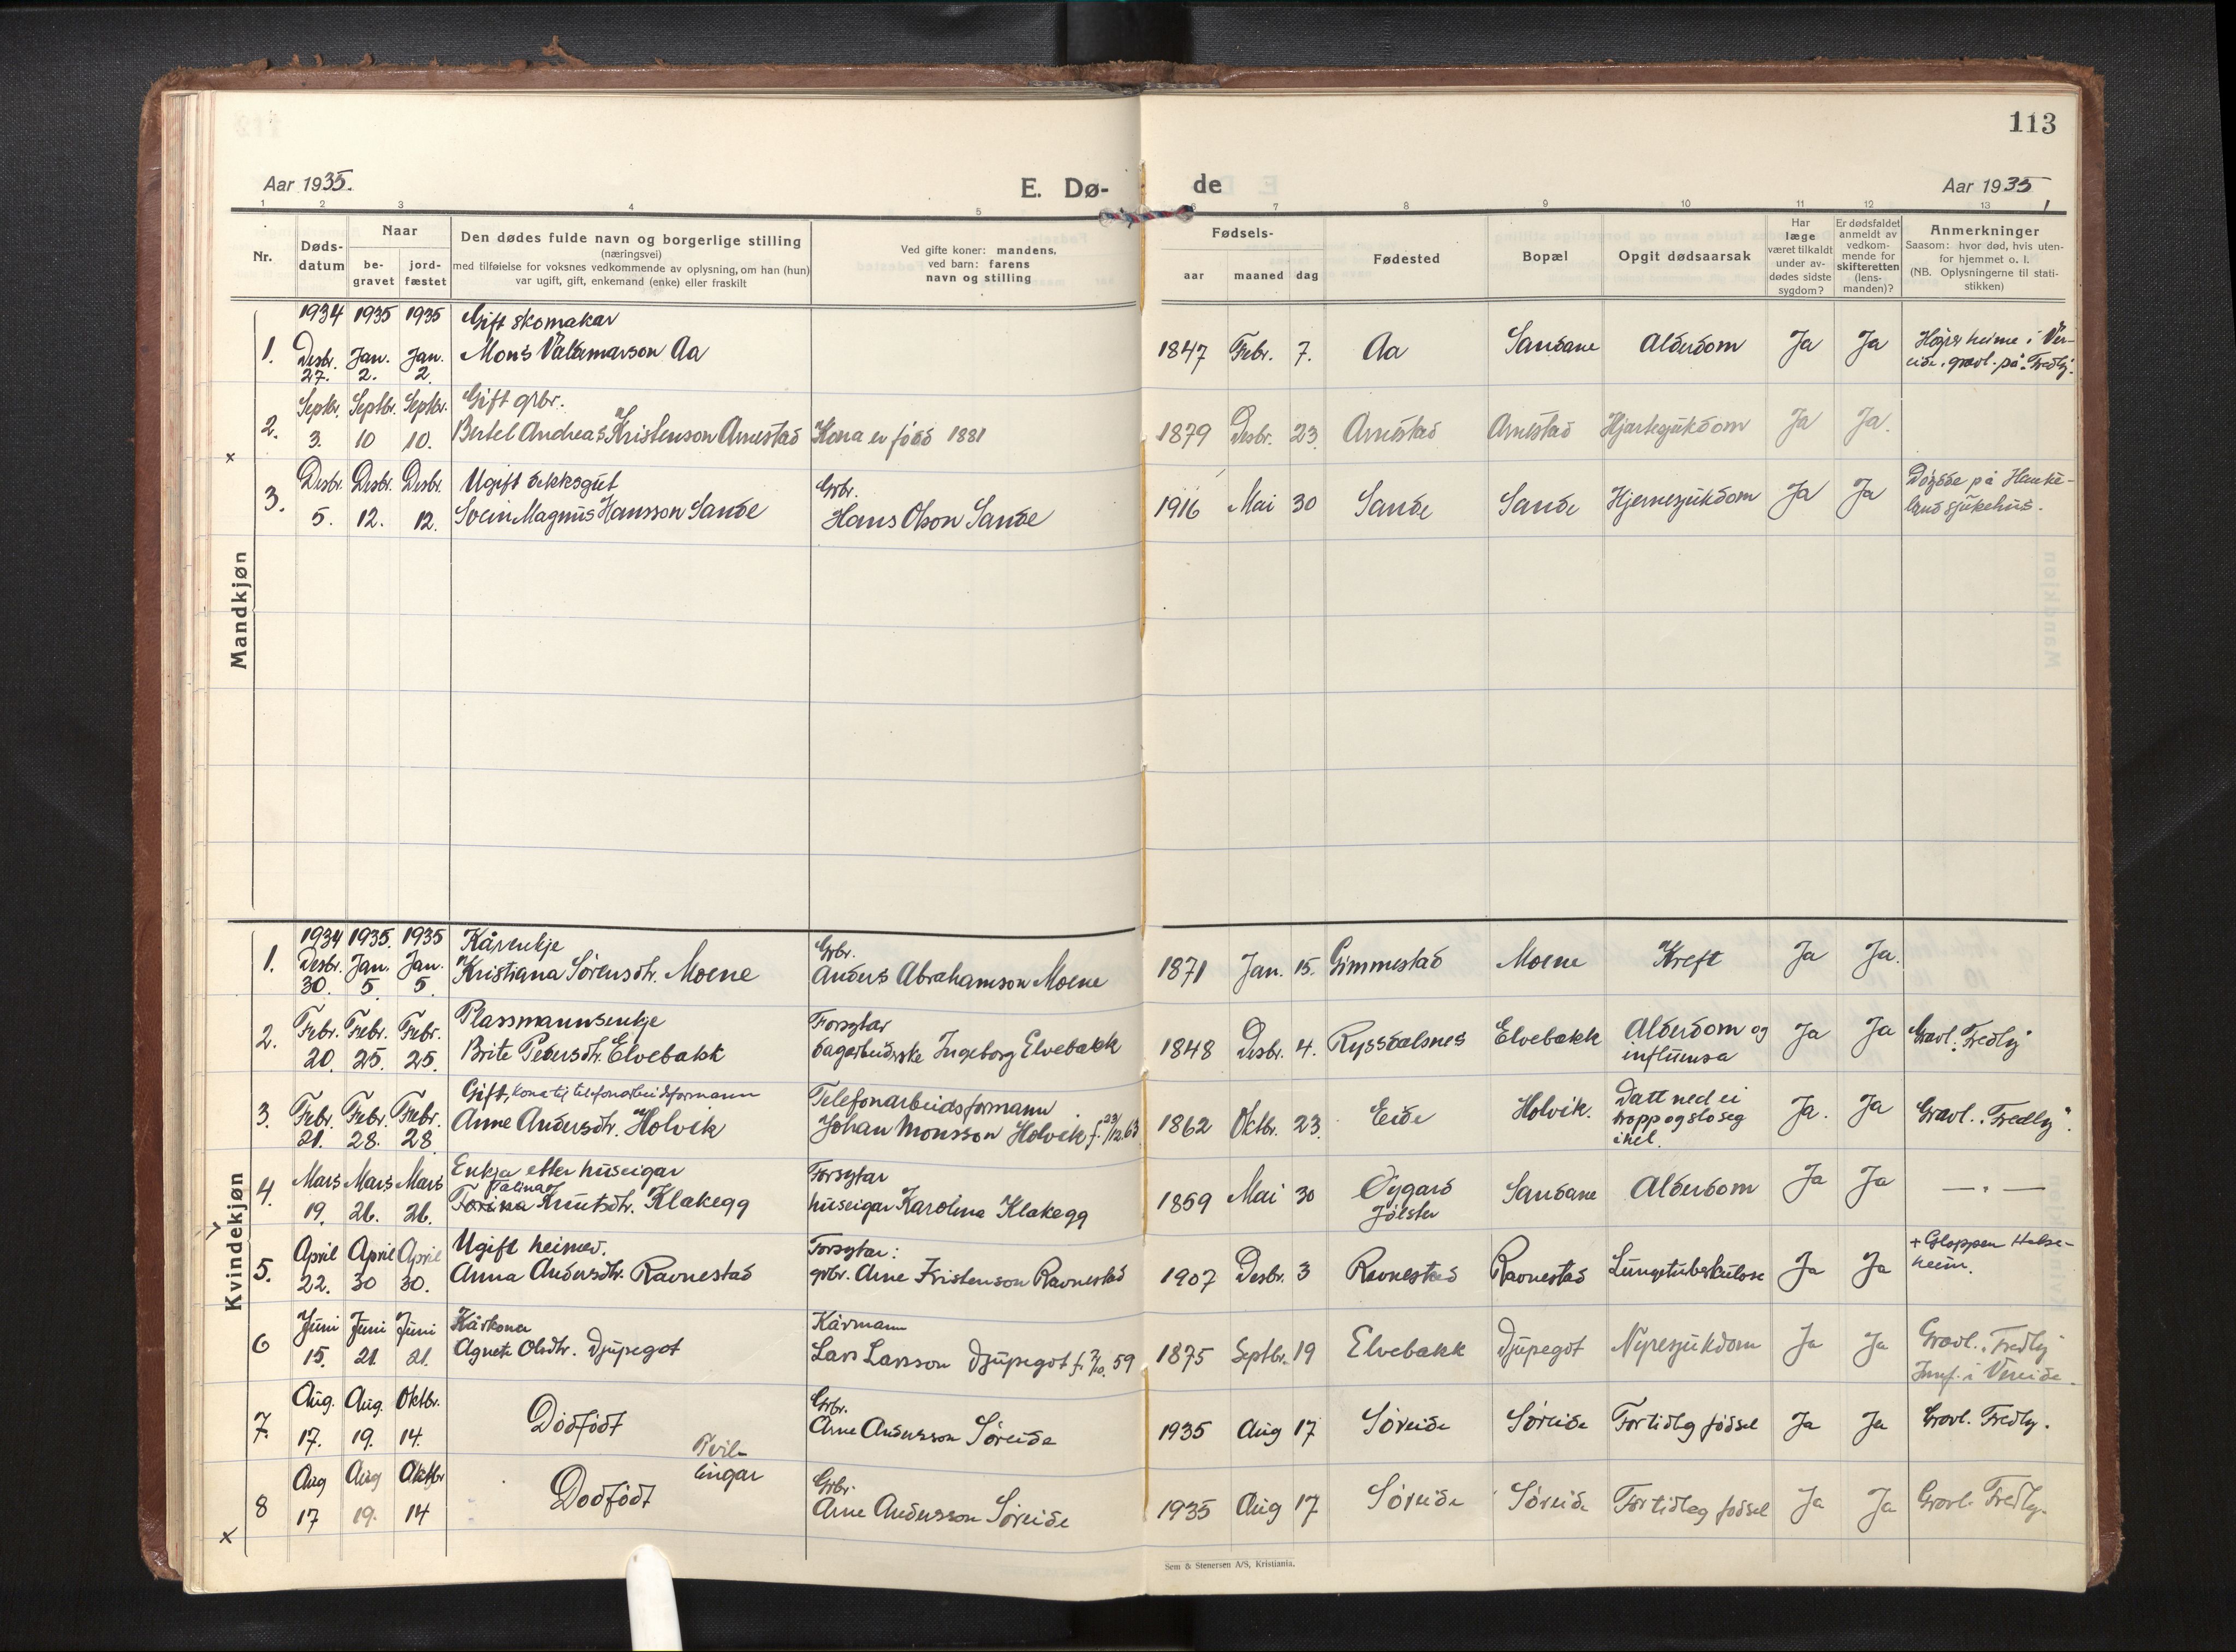 113
Aar 1935.
E. Dø-
de
Aar 1935
1 2 3 4 5 6 7 8 9 10 11 12 13
Nr.
Døds-
datum
Naar
be-
gravet
jord-
fæstet
Den dødes fulde navn og borgerlige stilling
(næringsvei)
med tilføielse for voksnes vedkommende av oplysning, om han (hun)
var ugift, gift, enkemand (enke) eller fraskilt
Ved gifte koner: mandens,
ved barn: farens
navn og stilling
Fødsels-
aar maaned dag
Fødested
Bopæl
Opgit dødsaarsak
Har
læge
været tilkaldt
under av-
dødes sidste
sygdom?
Er dødsfaldet
anmeldt av
vedkom-
mende for
skifteretten
(lens-
manden)?
Anmerkninger
Saasom: hvor død, hvis uten-
for hjemmet o. l.
(NB. Oplysningerne til stati-
stikken)
Mandkjøn
1934 1935 1935 Gift skomakar
1. Desbr. Jan. Jan. Mons Valdemarson Aa 1847 Febr. 7. Aa Sandane Alderdom Ja Ja
27. 2. 2.
eide. gravl. på "Fredly".
Septbr. Septbr. Septbr. Gift grbr.
2. 3. 10 10. Bertel Andreas Kristenson Arnestad Kona er fødd 1881 1879 Desbr. 23 Arnestad Arnestad Hjartesjukdom Ja Ja.
x
Desbr. Desbr. Desbr. Ugift dekksgut Grbr. Døydde på Hauke-
3. 5. 12. 12. Svein Magnus Hansson Sande Hans Olson Sande 1916 Mai 30 Sande Sande Hjernesjukdom Ja Ja land sjukehus.
Kvindekjøn
1934 1935. 1935 Kårenkje Grbr.
1. Desbr. Jan. Jan. Kristiana Sørensdtr. Moene Anders Abrahamson Moene 1871 Jan. 15. Gimmestad Moene Kreft Ja Ja.
30. 5. 5.
Plassmannsenkje Forsytar
2. Febr. Febr. Febr. Brite Pedersdtr. Elvebakk dagarbeidsske Ingeborg Elvebakk 1848 Desbr. 4. Ryssdalsnes Elvebakk Alderdom og Ja Ja Gravl. "Fredly"
20. 25. 25. influensa
Gift, kona til telefonarbeidsformann Telefonarbeidsformann Datt ned ei
3. Febr. Febr. Febr. Anne Andersdtr. Holvik Johan Monsson Holvik f. 23/12.63 1862 Oktbr. 23. Eide Holvik. tropp og slo seg Ja. Ja Gravl. "Fredly".
21. 28. 28. ihel.
Mars Mars Mars Enkja etter huseigar Forsytar
4. 19. 26. 26. Knutsdtr. Klakegg huseigar Karolina Klakegg 1859 Mai 30 Øygard Sandane Alderdom Ja Ja — " —
Jølster
April April April Ugift heimev. Forsytar: + Gloppen Helse-
5. 22. 30 30. Anna Andersdtr. Ravnestad grbr. Arne Kristenson Ravnestad 1907 Desbr. 3 Ravnestad Ravnestad Lungetuberkulose Ja Ja heim.
Juni Juni Juni Kårkona Kårmann Gravl. "Fredly
6 15. 21. 21. Agnete Olsdtr. Djupegot Lars Larsson Djupegot f. 7/10. 59 1875 Septbr. 19 Elvebakk Djupegot Nyresjukdom Ja Ja
Aug. Aug. Oktbr. Grbr.
7. 17. 19. 14. Dødfødt Arne Andersson Søreide 1935 Aug 17 Søreide Søreide Fortidleg fødsel Ja Ja Gravl. Fredly.
Tvil-
lingar
Aug Aug Oktbr Grbr.
8 17 19. 14 Dødfødt Arne Andersson Søreide 1935 Aug 17 Søreide Søreide Fortidleg fødsel Ja Ja Gravl. Fredly.
x
Sem & Stenersen A/S, Kristiania.